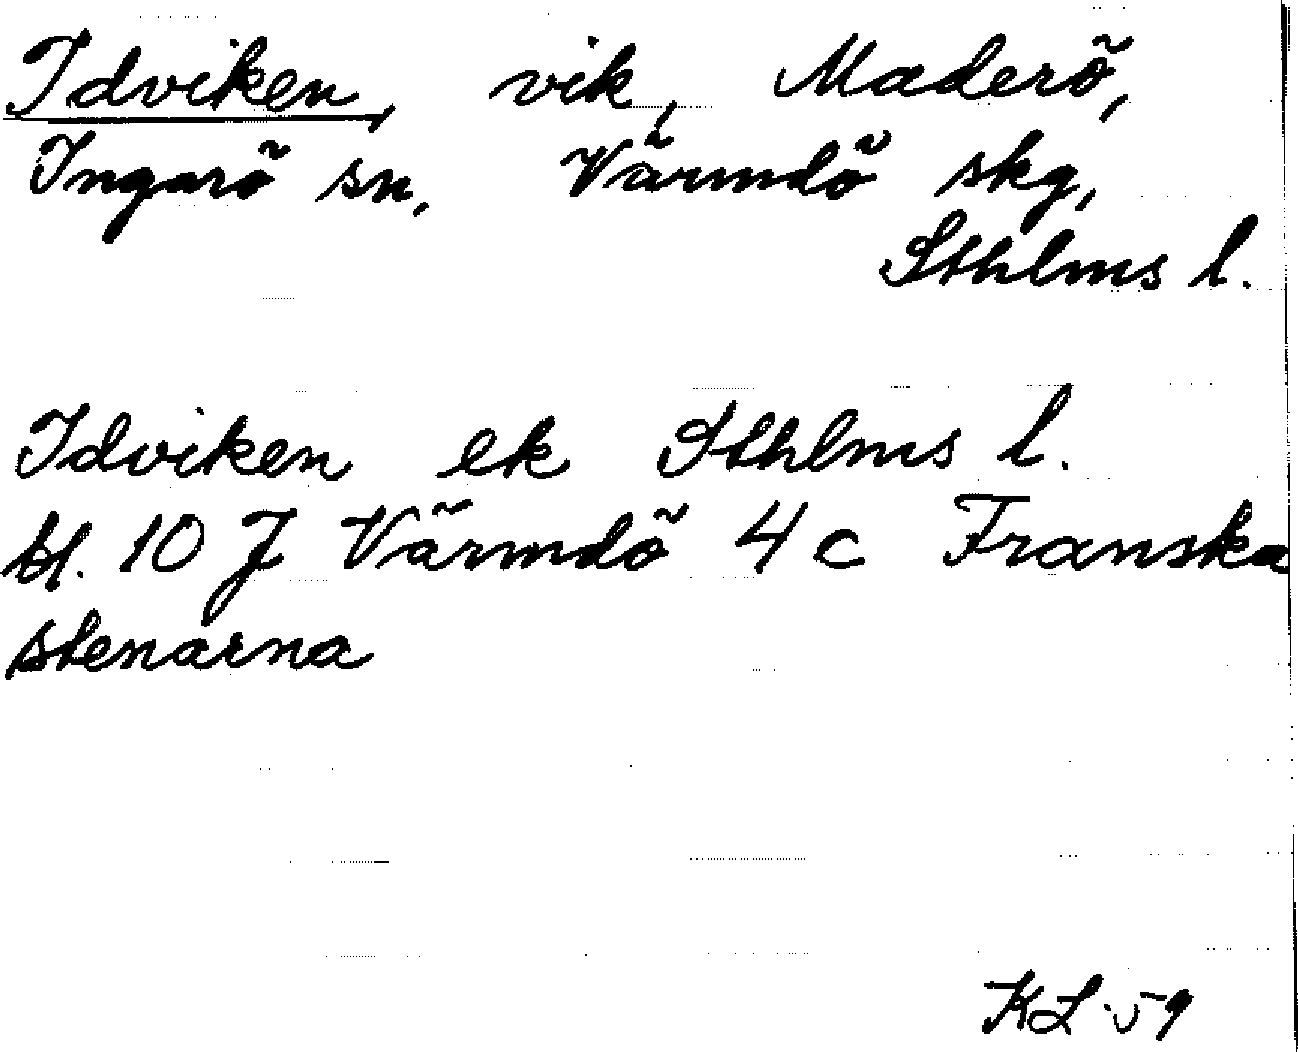 Idviken, vik, Maderö,
Ingarö sn, Värmdö skg,
Sthlms l.
Idviken ek Sthlms l.
bl. 10 J Värmdö 4 c Franska
stenarna
KL 59